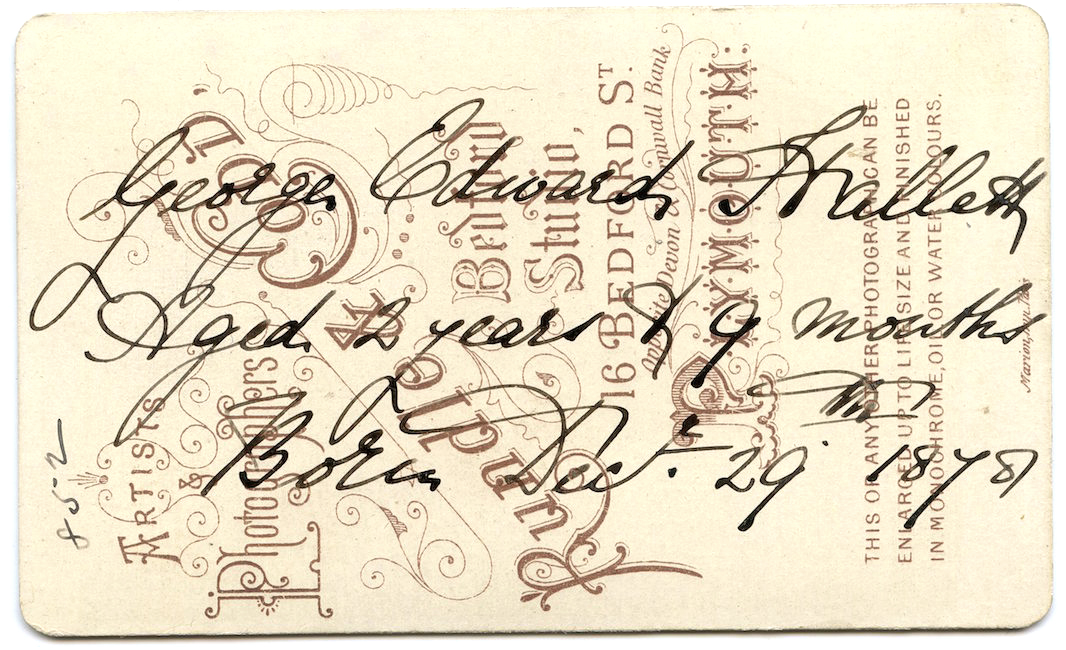 George Edward Hallett
Aged 2 years & 9 months
Born Dec. 29 1878
ARTISTS
&
Photographers
Rundle
&
Co
Bedford
Studio,
16 BEDFORD ST.
Opposite Devon & Cornwall Bank
PLYMOUTH:
THIS OR ANY OTHER PHOTOGRAPH CAN BE
ENLARGED UP TO LIFE SIZE AND FINISHED
IN MONOCHROME, OIL OR WATER COLOURS.
Marion,